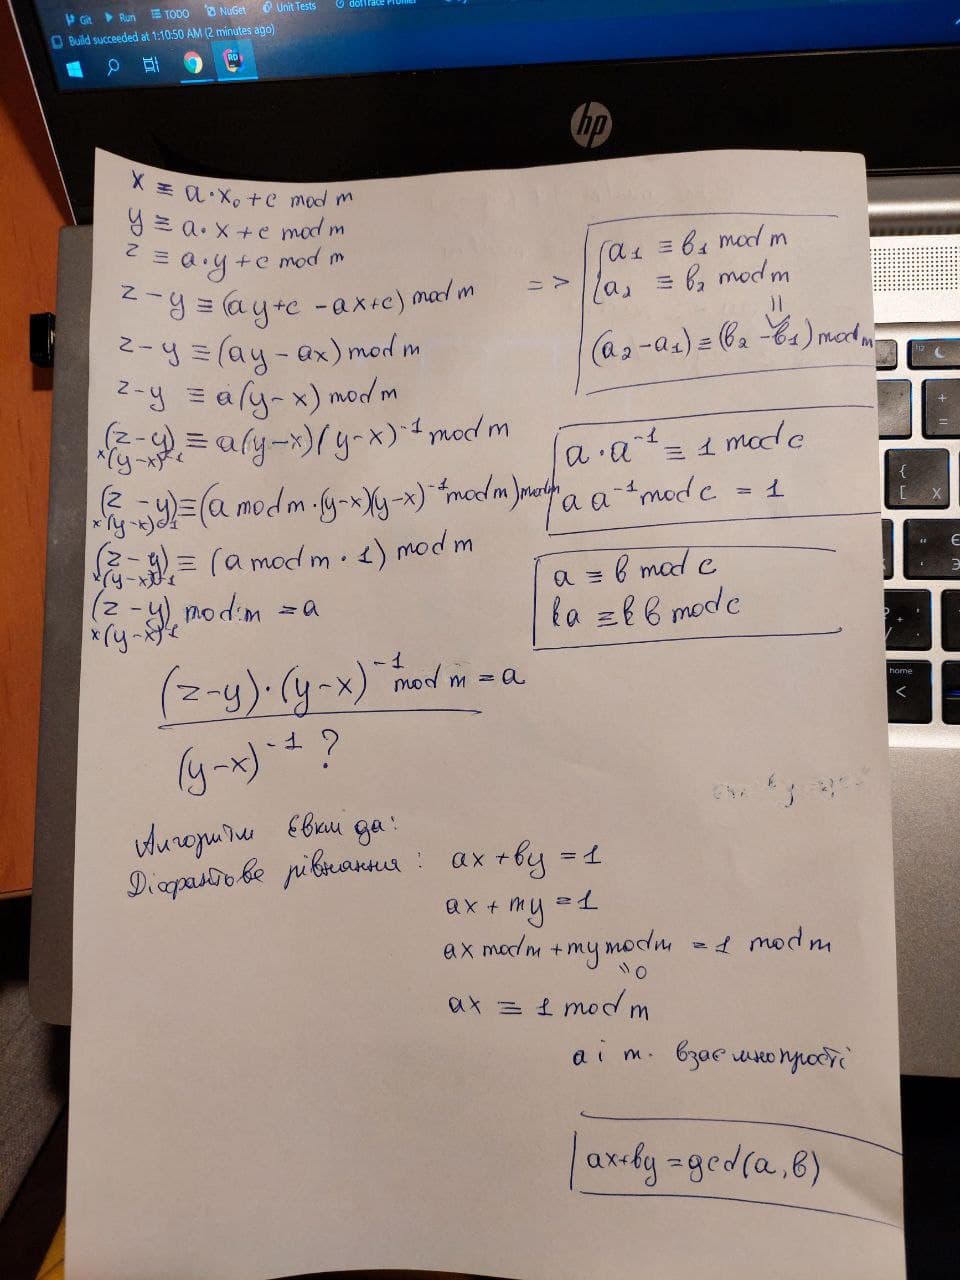 Git Run TODO NuGet Unit Tests dotTrace Profiler
Build succeeded at 1:10:50 AM (2 minutes ago)
RD
hp
x ≡ a·x₀+c mod m
y ≡ a·x+c mod m
z ≡ a·y+c mod m
z-y ≡ (ay+c -ax+c) mod m
z-y ≡ (ay-ax) mod m
z-y ≡ a(y-x) mod m
(z-y) ≡ a(y-x)(y-x)⁻¹ mod m
×(y-x)⁻¹
(z-y) ≡ (a mod m·(y-x)(y-x)⁻¹ mod m) mod m
×(y-x)⁻¹
(z-y) ≡ (a mod m · 1) mod m
×(y-x)⁻¹
(z-y) mod m = a
×(y-x)⁻¹
(z-y)·(y-x)⁻¹ mod m = a
(y-x)⁻¹ ?
=> a₁ ≡ в₁ mod m
a₂ ≡ в₂ mod m
(a₂-a₁) ≡ (в₂-в₁) mod m
a·a⁻¹ ≡ 1 mod c
a a⁻¹ mod c = 1
a ≡ в mod c
ka ≡ kв mod c
Алгоритм Евкліда:
Діофантове рівняння: ax+вy=1
ax+my=1
ax mod m + my mod m = 1 mod m
"0
ax ≡ 1 mod m
a і m. взаємнопрості
ax+вy=gcd(a,в)
home